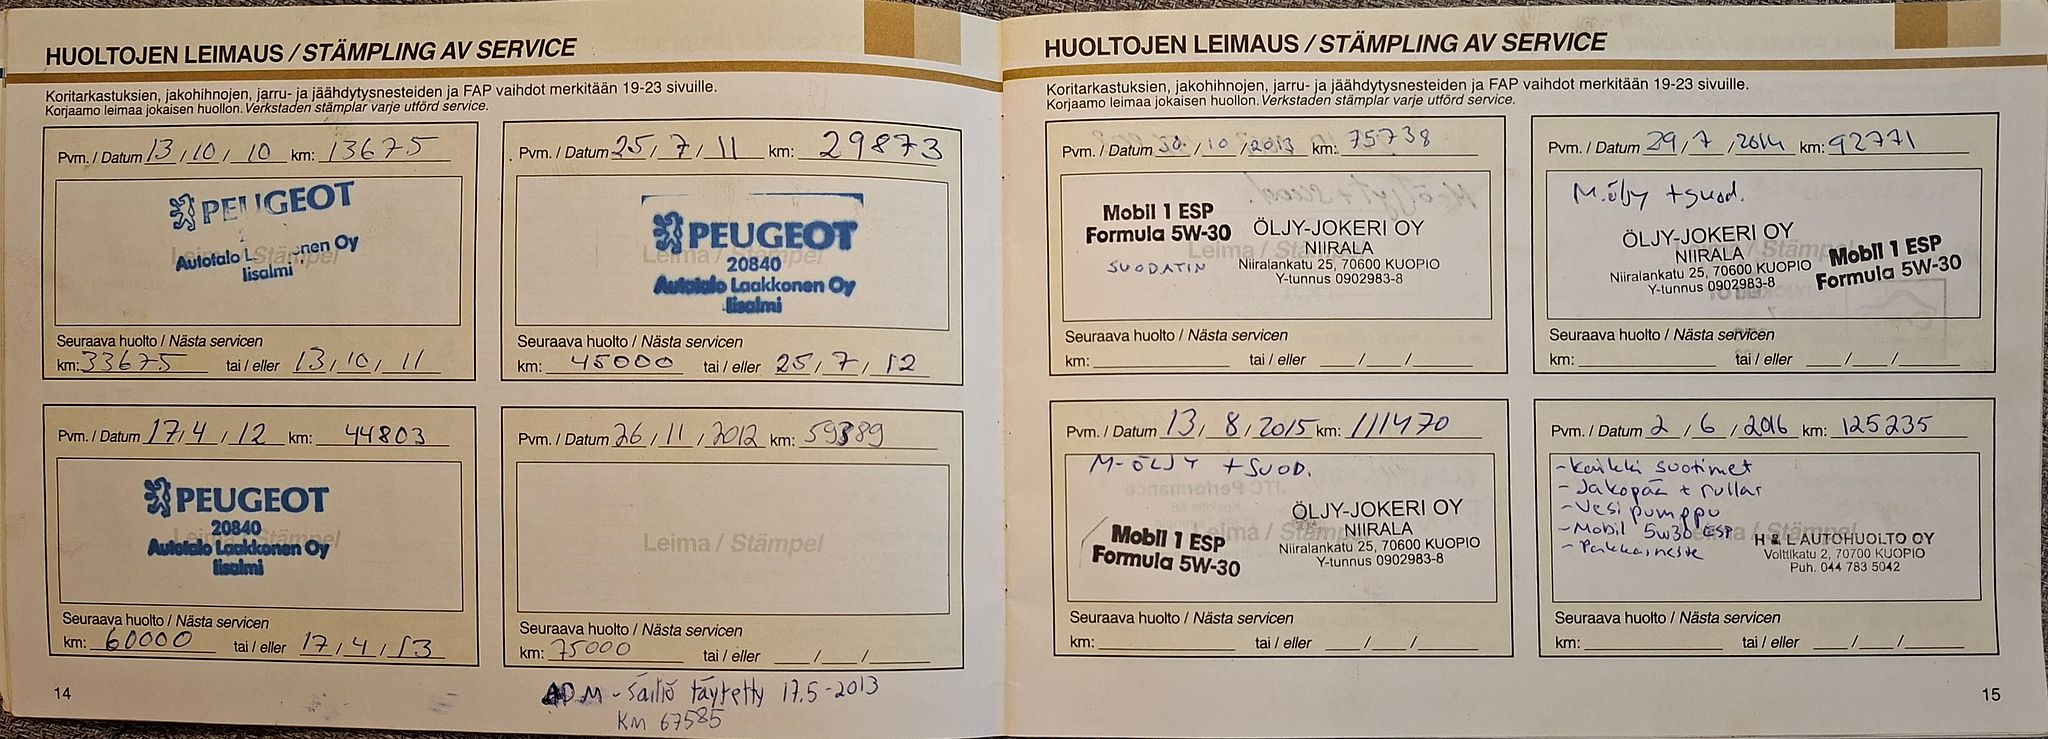 HUOLTOJEN LEIMAUS / STÄMPLING AV SERVICE
Koritarkastuksien, jakohihnojen, jarru- ja jäähdytysnesteiden ja FAP vaihdot merkitään 19-23 sivuille.
Korjaamo leimaa jokaisen huollon. Verkstaden stämplar varje utförd service.
Pvm. / Datum 13 / 10 / 10 km: 13675
PEUGEOT
Leima / Stämpel
Autotalo L nen Oy
Iisalmi
Seuraava huolto / Nästa servicen
km: 33675 tai / eller 13 / 10 / 11
Pvm. / Datum 25 / 7 / 11 km: 29873
PEUGEOT
Leima / Stämpel
20840
Autotalo Laakkonen Oy
Iisalmi
Seuraava huolto / Nästa servicen
km: 45000 tai / eller 25 / 7 / 12
Pvm. / Datum 17 / 4 / 12 km: 44803
PEUGEOT
Leima / Stämpel
20840
Autotalo Laakkonen Oy
Iisalmi
Seuraava huolto / Nästa servicen
km: 60000 tai / eller 17 / 4 / 13
Pvm. / Datum 26 / 11 / 2012 km: 59389
Leima / Stämpel
Seuraava huolto / Nästa servicen
km: 75000 tai / eller / /
14
ADM - Säiliö täytetty 17.5-2013
KM 67585
HUOLTOJEN LEIMAUS / STÄMPLING AV SERVICE
Koritarkastuksien, jakohihnojen, jarru- ja jäähdytysnesteiden ja FAP vaihdot merkitään 19-23 sivuille.
Korjaamo leimaa jokaisen huollon. Verkstaden stämplar varje utförd service.
Pvm. / Datum 30. / 10 / 2013 km: 75738
Mobil 1 ESP
Formula 5W-30
SUODATIN
ÖLJY-JOKERI OY
NIIRALA
Leima / Stämpel
Niiralankatu 25, 70600 KUOPIO
Y-tunnus 0902983-8
Seuraava huolto / Nästa servicen
km: tai / eller / /
Pvm. / Datum 29 / 7 / 2014 km: 92771
M.öljy + suod.
ÖLJY-JOKERI OY
NIIRALA
Leima / Stämpel
Niiralankatu 25, 70600 KUOPIO
Y-tunnus 0902983-8
Mobil 1 ESP
Formula 5W-30
Seuraava huolto / Nästa servicen
km: tai / eller / /
Pvm. / Datum 13 / 8 / 2015 km: 111470
M-ÖLJY + SUOD.
ÖLJY-JOKERI OY
NIIRALA
Leima / Stämpel
Niiralankatu 25, 70600 KUOPIO
Y-tunnus 0902983-8
Mobil 1 ESP
Formula 5W-30
Seuraava huolto / Nästa servicen
km: tai / eller / /
Pvm. / Datum 2 / 6 / 2016 km: 125235
- Kaikki suotimet
- Jakopää + rullat
- Vesipumppu
- Mobil 5w30 ESP
Leima / Stämpel
H & L AUTOHUOLTO OY
Volttikatu 2, 70700 KUOPIO
Puh. 044 783 5042
Seuraava huolto / Nästa servicen
km: tai / eller / /
15